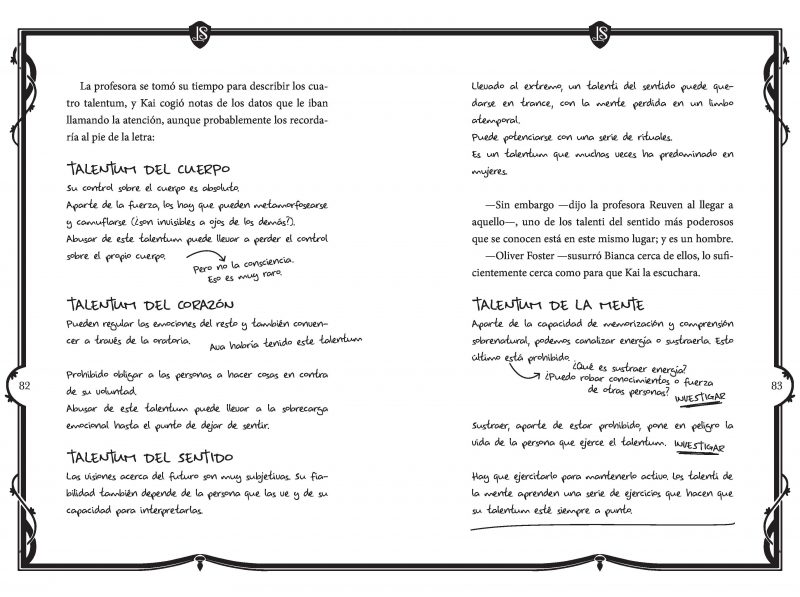 LS
LS
La profesora se tomó su tiempo para describir los cua-
tro talentum, y Kai cogió notas de los datos que le iban
llamando la atención, aunque probablemente los recorda-
ría al pie de la letra:
TALENTUM DEL CUERPO
Su control sobre el cuerpo es absoluto.
Aparte de la fuerza, los hay que pueden metamorfosearse
y camuflarse (¿son invisibles a ojos de los demás?).
Abusar de este talentum puede llevar a perder el control
sobre el propio cuerpo.
Pero no la consciencia.
Eso es muy raro.
TALENTUM DEL CORAZÓN
Pueden regular las emociones del resto y también conven-
cer a través de la oratoria.
Ava habría tenido este talentum
Prohibido obligar a las personas a hacer cosas en contra
de su voluntad.
Abusar de este talentum puede llevar a la sobrecarga
emocional hasta el punto de dejar de sentir.
TALENTUM DEL SENTIDO
Las visiones acerca del futuro son muy subjetivas. Su fia-
bilidad también depende de la persona que las ve y de su
capacidad para interpretarlas.
82
Llevado al extremo, un talenti del sentido puede que-
darse en trance, con la mente perdida en un limbo
atemporal.
Puede potenciarse con una serie de rituales.
Es un talentum que muchas veces ha predominado en
mujeres.
—Sin embargo —dijo la profesora Reuven al llegar a
aquello—, uno de los talenti del sentido más poderosos
que se conocen está en este mismo lugar; y es un hombre.
—Oliver Foster —susurró Bianca cerca de ellos, lo sufi-
cientemente cerca como para que Kai la escuchara.
TALENTUM DE LA MENTE
Aparte de la capacidad de memorización y comprensión
sobrenatural, podemos canalizar energía o sustraerla. Esto
último está prohibido.
¿Qué es sustraer energía?
¿Puedo robar conocimientos o fuerza
de otras personas?
INVESTIGAR
Sustraer, aparte de estar prohibido, pone en peligro la
vida de la persona que ejerce el talentum. INVESTIGAR
Hay que ejercitarlo para mantenerlo activo. los talenti de
la mente aprenden una serie de ejercicios que hacen que
su talentum esté siempre a punto.
83